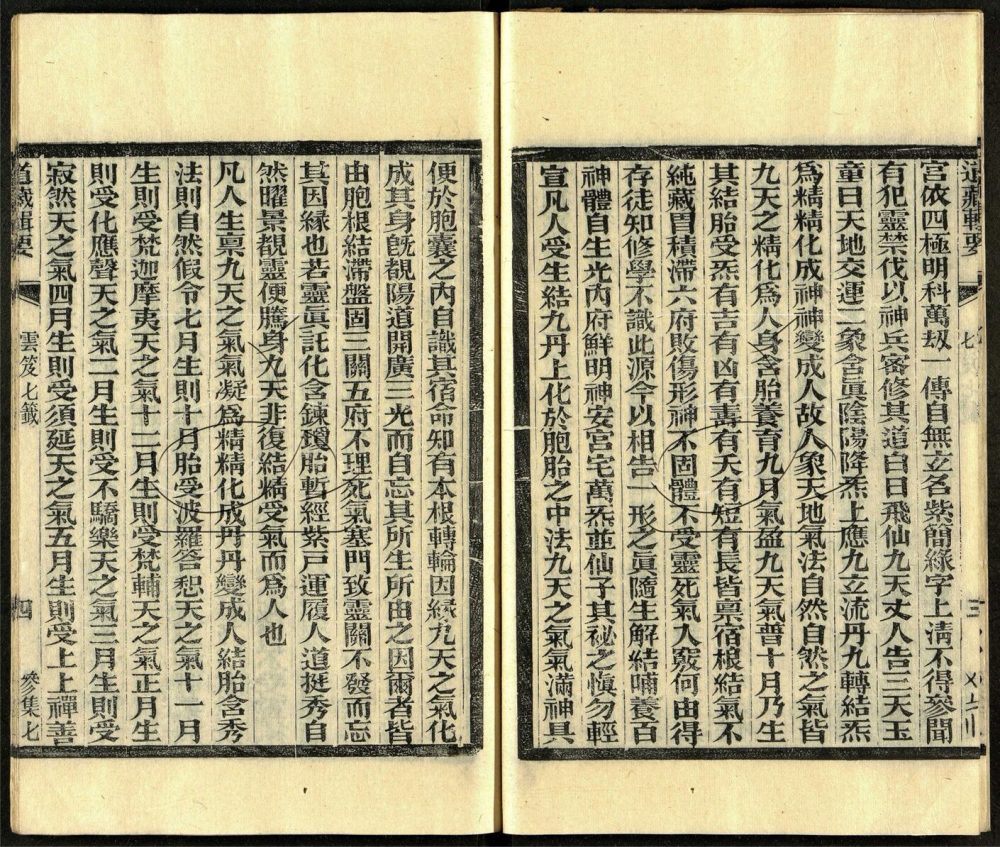 道藏輯要
七
三
宮依四極明科萬劫一傳自無立名紫簡緣字上清不得參聞
有犯靈禁伐以神兵密修其道白日飛仙九天丈人告三天玉
童曰天地交運二象含眞陰陽降炁上應九立流丹九轉結炁
爲精精化成神神變成人故人象天地氣法自然自然之氣皆
九天之精化爲人身含胎養育九月氣盈九天氣普十月乃生
其結胎受炁有吉有凶有壽有夭有短有長皆禀宿根結氣不
純藏胃積滯六府敗傷形神不固體不受靈死氣入竅何由得
存徒知修學不識此源今以相告一形之眞隨生解結哺養百
神體自生光內府鮮明神安宮宅萬炁並仙子其祕之慎勿輕
宣凡人受生結九丹上化於胞胎之中法九天之氣氣滿神具
便於胞囊之內自識其宿命知有本根轉輪因緣九天之氣化
成其身旣覩陽道開廣三光而自忘其所生所由之因爾者皆
由胞根結滯盤固三關五府不理死氣塞門致靈關不發而忘
其因緣也若靈眞託化含鍊瓊胎暫經紫戸運履人道挺秀自
然曜景覩靈便騰身九天非復結精受氣而爲人也
凡人生禀九天之氣氣凝爲精精化成丹丹變成人結胎含秀
法則自然假令七月生則十月胎受波羅荅恕天之氣十一月
生則受梵迦摩夷天之氣十二月生則受梵輔天之氣正月生
則受化應聲天之氣二月生則受不驕樂天之氣三月生則受
寂然天之氣四月生則受須延天之氣五月生則受上上禪善
道藏輯要
雲笈七籤
四
參集七